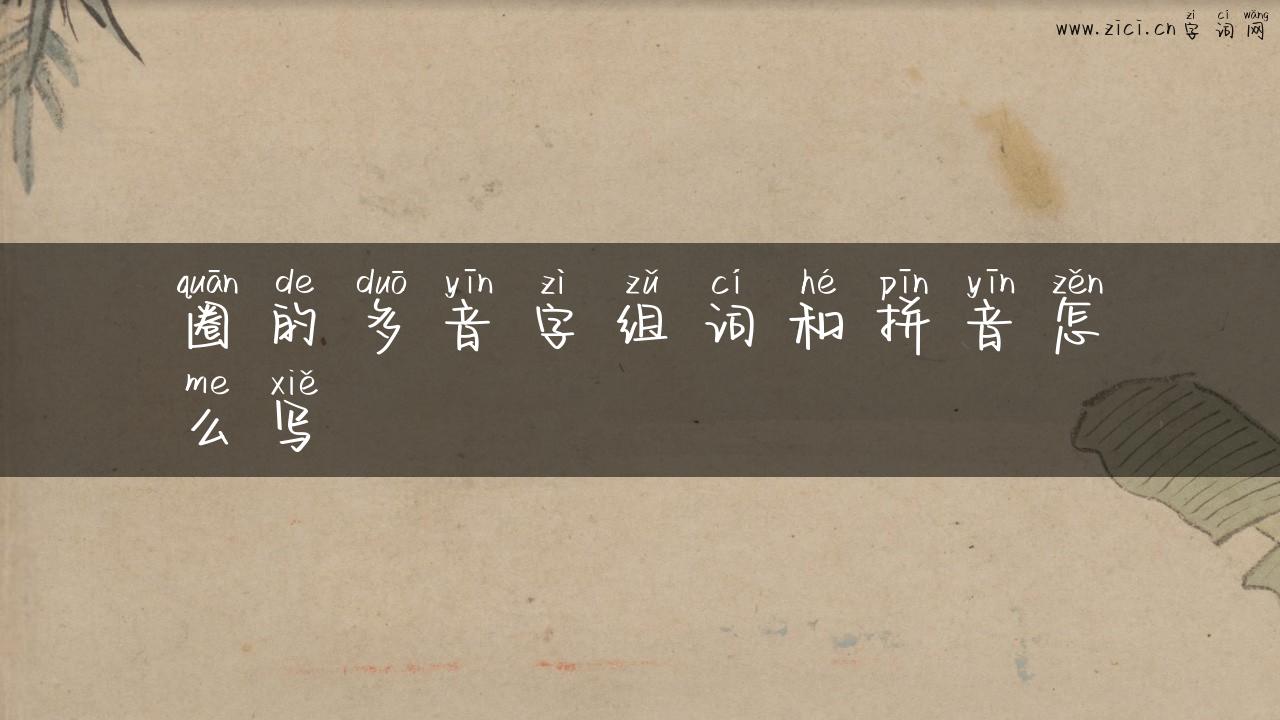 zì cí wǎng
www.zici.cn 字词网
quān de duō yīn zì zǔ cí hé pīn yīn zěn
圈的多音字组词和拼音怎
me xiě
么写